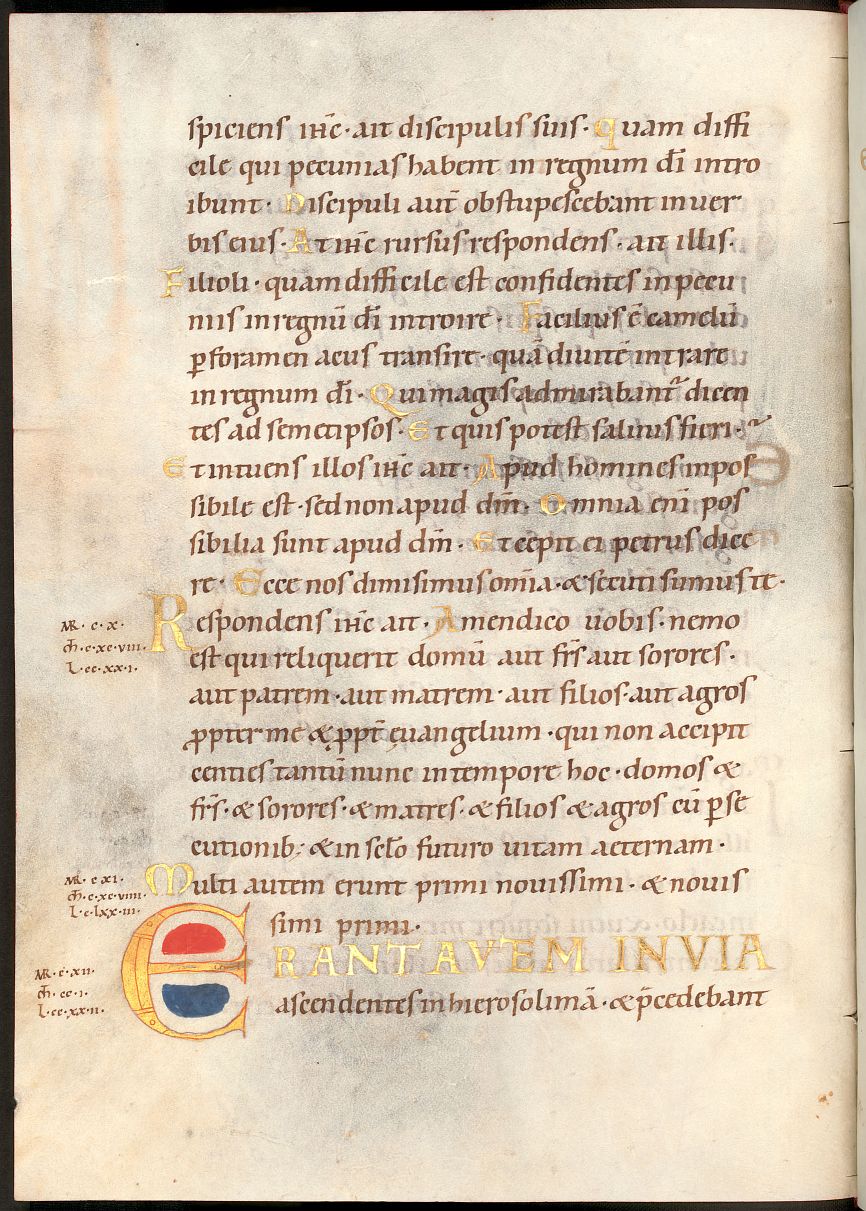 spiciens ih̄c · ait discipulis suis · Quam diffi
cile qui pecunias habent in regnum dī intro
ibunt · Discipuli aut̄ obstupescebant in ver
bis eius · At ih̄c rursus respondens · ait illis ·
Filioli · quam difficile est confidentes in pecu
niis in regnū dī introire · Facilius ē camelū
ꝑ foramen acus transire · quā divitē intrare
in regnum dī · Qui magis admirabant᷑ dicen
tes ad semetipsos · Et quis potest salvus fieri ·
Et intuens illos ih̄c ait · Apud homines inpos
sibile est · sed non apud dm̄ · Omnia eni pos
sibilia sunt apud dm̄ · Et cēpit ei petrus dice
re · Ecce nos dimisimus om̄ia · & secuti sumus te ·
MR · c · x ·
M̄ · c · xc · viii ·
L · cc · xx · i ·
Respondens ih̄c ait · Amen dico uobis · nemo
est qui reliquerit domū aut fr̄s aut sorores ·
aut patrem · aut matrem · aut filios · aut agros
ꝓpter me & ꝓpt̄ euangelium · qui non accipit
centies tantū nunc in tempore hoc · domos &
fr̄s · & sorores · & matres · & filios & agros cū ꝑse
cutionib; · & in sc̄lo futuro uitam aeternam ·
MR · c · xi ·
M̄ · c · xc · viiii ·
L · c · lxx · iii ·
Multi autem erunt primi nouissimi · & nouis
simi primi ·
MR · c · xii ·
M̄ · cc · i ·
L · cc · xx · ii ·
ERANT AVTEM IN VIA
ascendentes in hierosolimā · & p̄cedebant